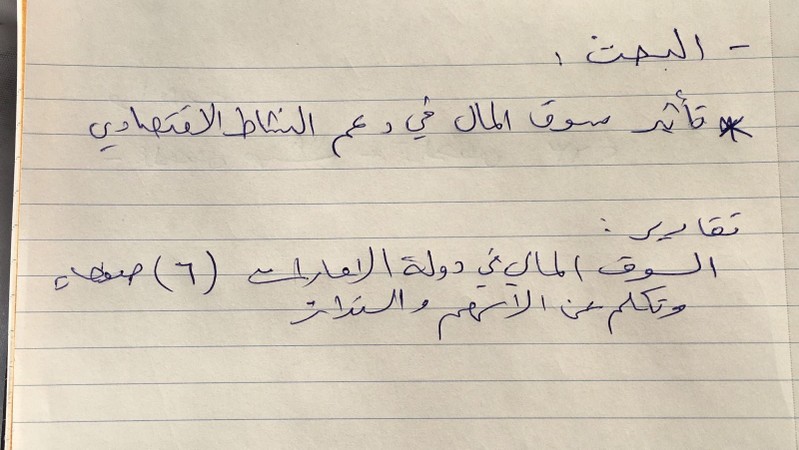 - البحث :
* تأثير سوق المال في دعم النشاط الاقتصادي
تقارير :
السوق المالي في دولة الامارات (٦) صفحات
وتكلم عن الأسهم والسندات